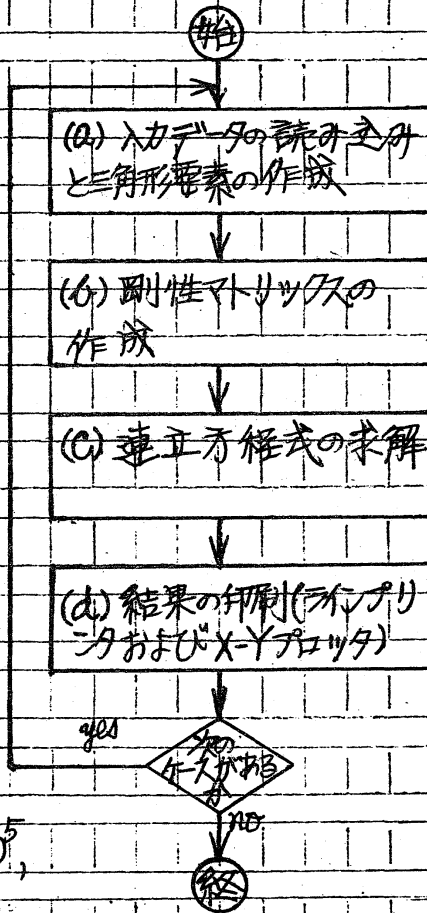 始
(a) 入力データの読み込み
と三角形要素の作成
(b) 剛性マトリックスの
作成
(c) 連立方程式の求解
(d) 結果の印刷(ラインプリ
ンタおよびX-Yプロッタ)
yes
次の
ケースがある
か
no
5,
終